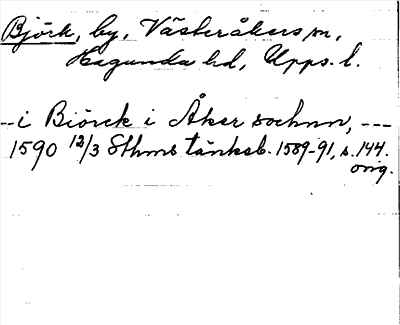 Björk, by, Västeråkers sn,
Hagunda hd, Upps. l.
--i Biörck i Åker sochnn, ---
1590 12/3 Sthms tänkeb. 1589-91, s. 144.
orig.